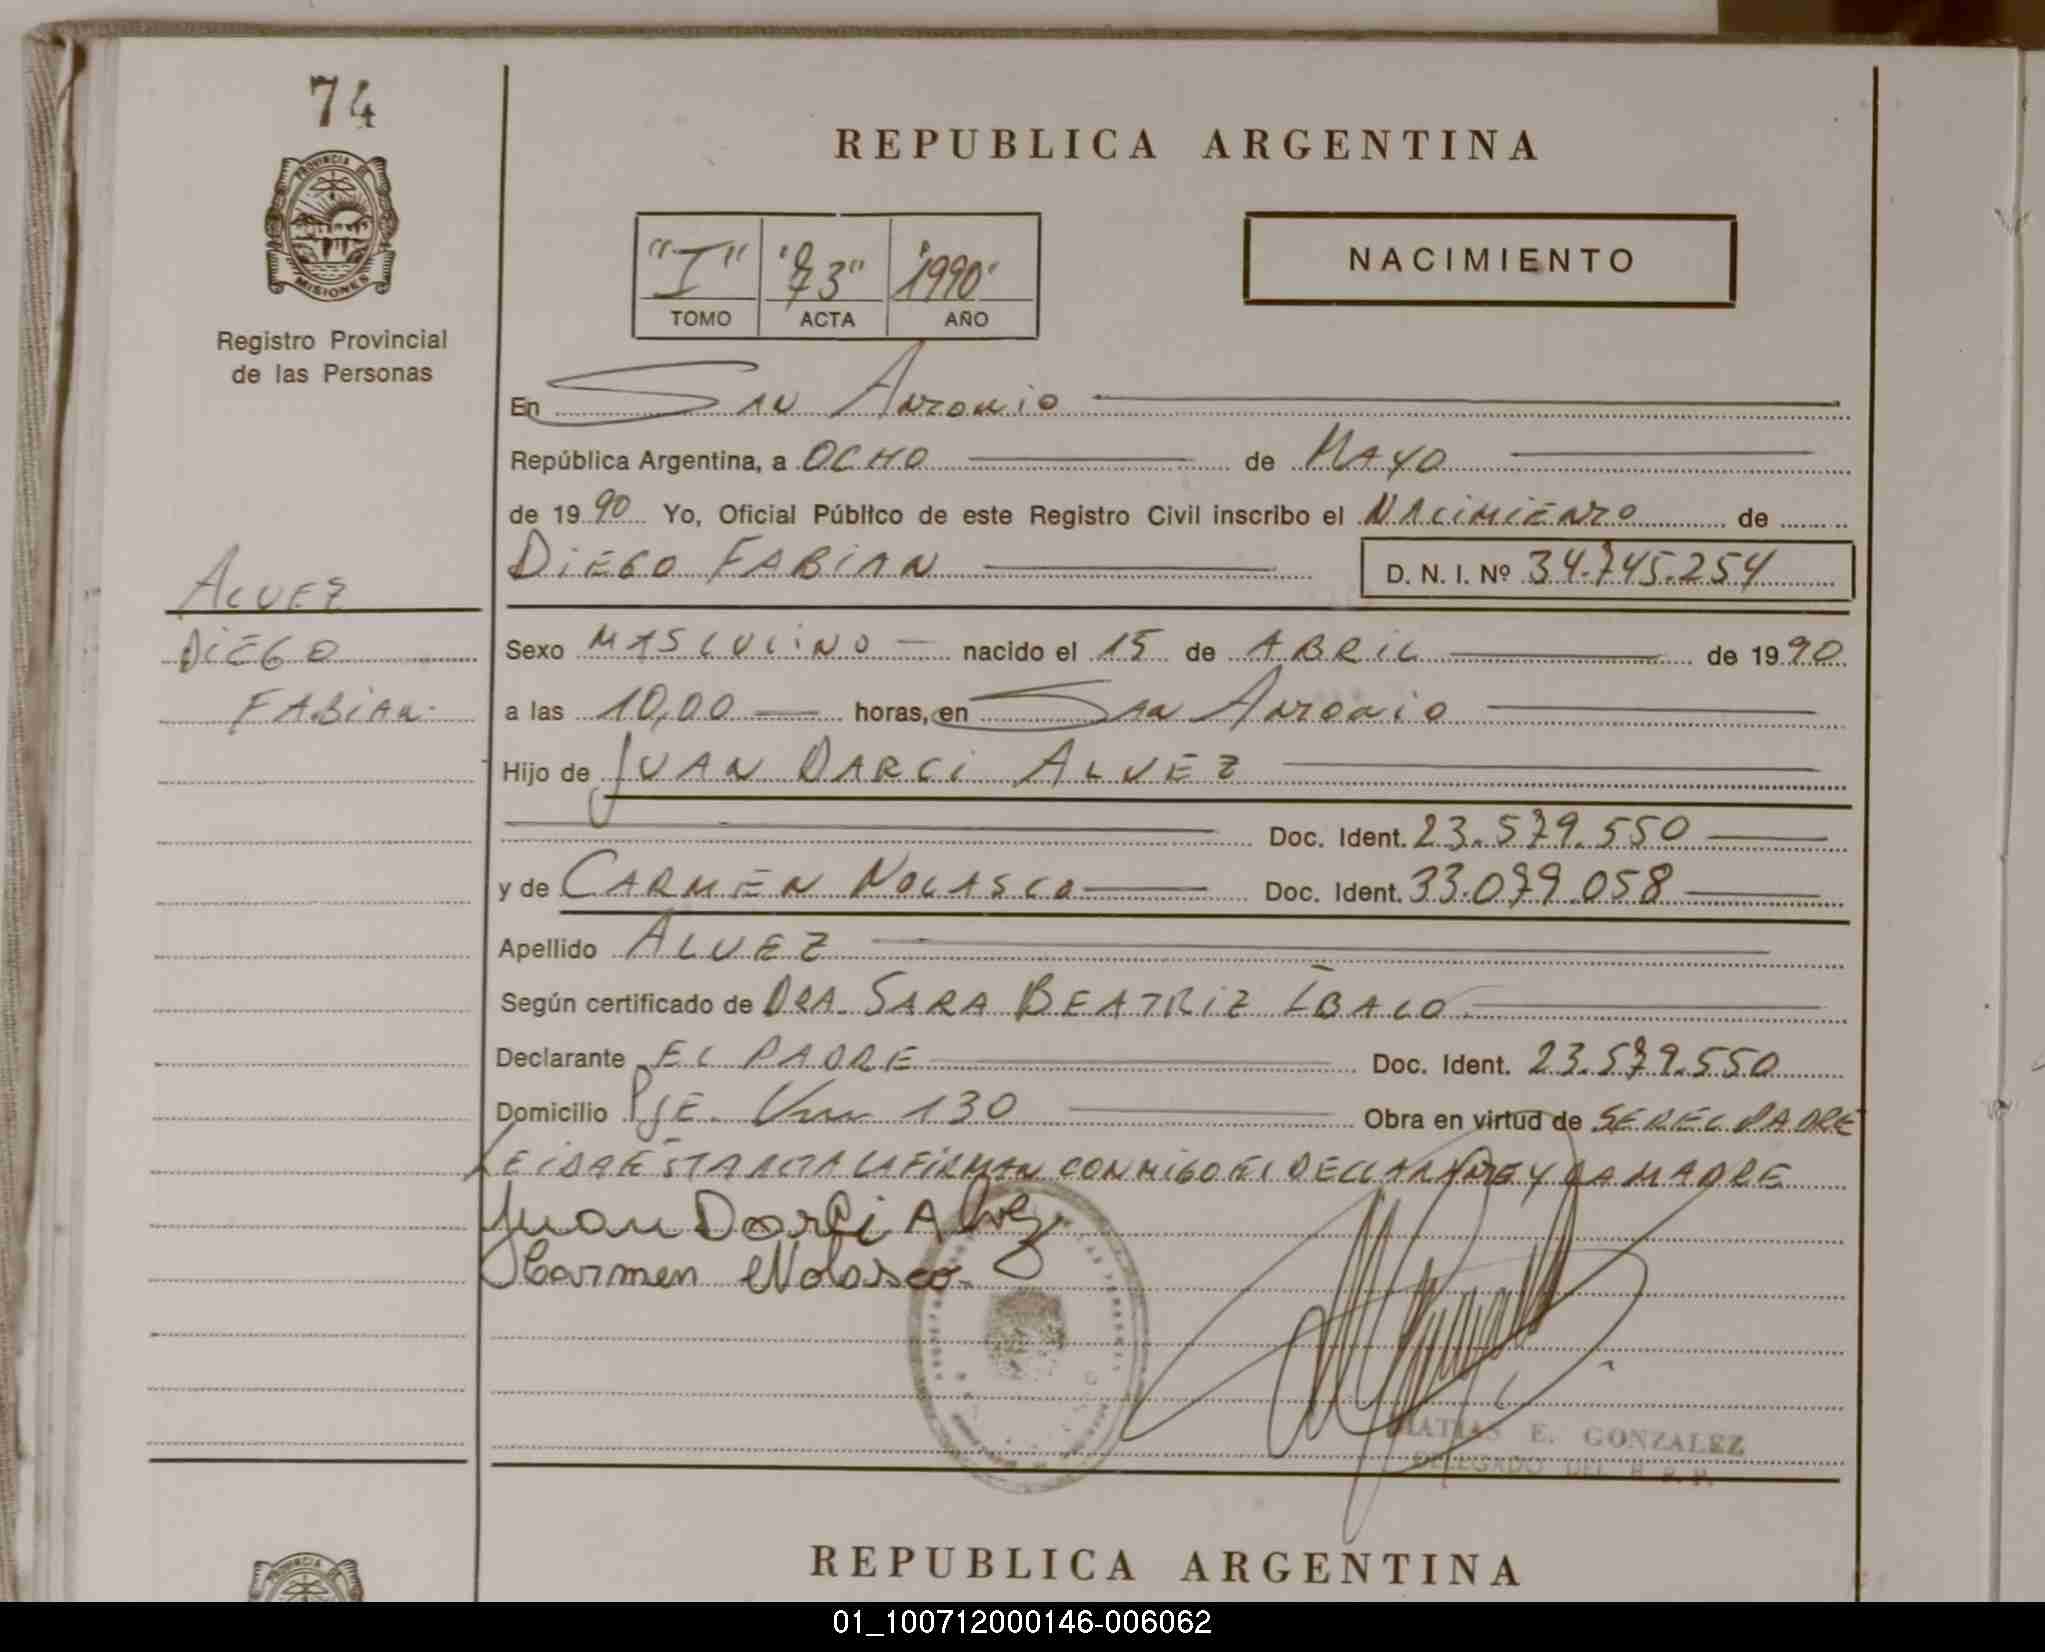 74
PROVINCIA DE
MISIONES
Registro Provincial
de las Personas
ALVEZ
DIEGO
FABIAN
REPUBLICA ARGENTINA
"I" "73" "1990"
TOMO ACTA AÑO
NACIMIENTO
En SAN ANTONIO
República Argentina, a OCHO de MAYO
de 1990 Yo, Oficial Público de este Registro Civil inscribo el NACIMIENTO de
DIEGO FABIAN D. N. I. Nº 34.745.254
Sexo MASCULINO nacido el 15 de ABRIL de 1990
a las 10,00 horas, en SAN ANTONIO
Hijo de JUAN DARCI ALVEZ
Doc. Ident. 23.579.550
y de CARMEN NOLASCO Doc. Ident. 33.079.058
Apellido ALVEZ
Según certificado de DRA. SARA BEATRIZ IBALO
Declarante EL PADRE Doc. Ident. 23.579.550
Domicilio PJE. 130 Obra en virtud de SER EL PADRE
LEIDA ESTA ACTA LA FIRMAN CONMIGO EL DECLARANTE Y LA MADRE
Juan Darci Alvez
Carmen Nolasco
MATIAS E. GONZALEZ
DELEGADO DEL R. P. P.
REPUBLICA ARGENTINA
01_100712000146-006062